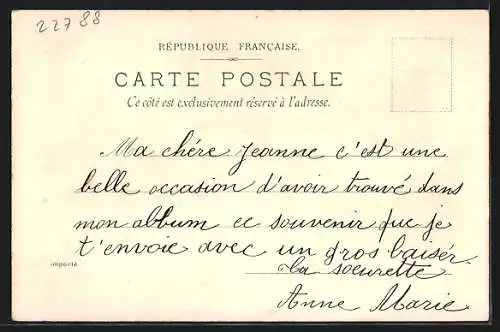 22788
RÉPUBLIQUE FRANÇAISE.
CARTE POSTALE
Ce côté est exclusivement réservé à l'adresse.
Ma chére Jeanne c'est une
belle occasion d'avoir trouvé dans
mon abbum ce souvenir que je
t'envoie avec un gros baiser.
importé
ta soeurette
Anne Marie